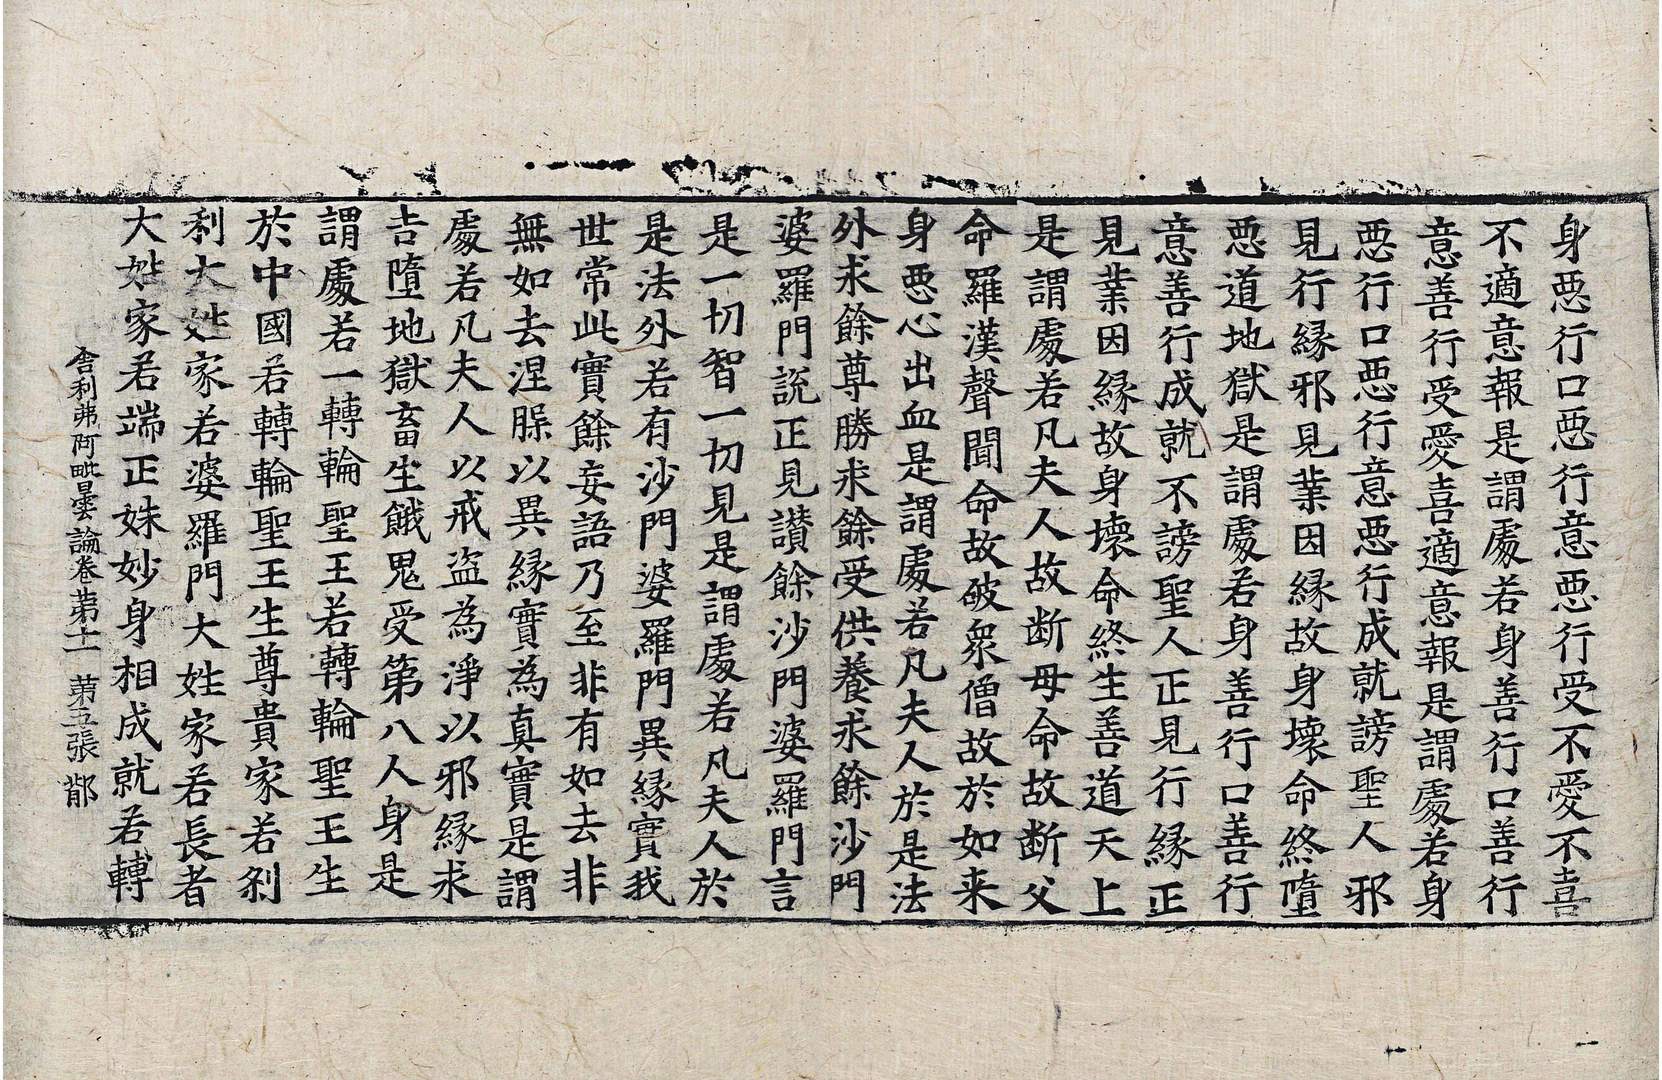 身惡行口惡行意惡行受不愛不喜
不適意報是謂處若身善行口善行
意善行受愛喜適意報是謂處若身
惡行口惡行意惡行成就謗聖人邪
見行緣邪見業因緣故身壞命終墮
惡道地獄是謂處若身善行口善行
意善行成就不謗聖人正見行緣正
見業因緣故身壞命終生善道天上
是謂處若凡夫人故斷母命故斷父
命羅漢聲聞命故破衆僧故於如來
身惡心出血是謂處若凡夫人於是法
外求餘尊勝求餘受供養求餘沙門
婆羅門說正見讃餘沙門婆羅門言
是一切智一切見是謂處若凡夫人於
是法外若有沙門婆羅門異緣實我
世常此實餘妄語乃至非有如去非
無如去涅槃以異緣實為真實是謂
處若凡夫人以戒盜為淨以邪緣求
吉墮地獄畜生餓鬼受第八人身是
謂處若一轉輪聖王若轉輪聖王生
於中國若轉輪聖王生尊貴家若剎
利大姓家若婆羅門大姓家若長者
大姓家若端正姝妙身相成就若轉
舍利弗阿毗曇論卷第十一 第五張 鄁